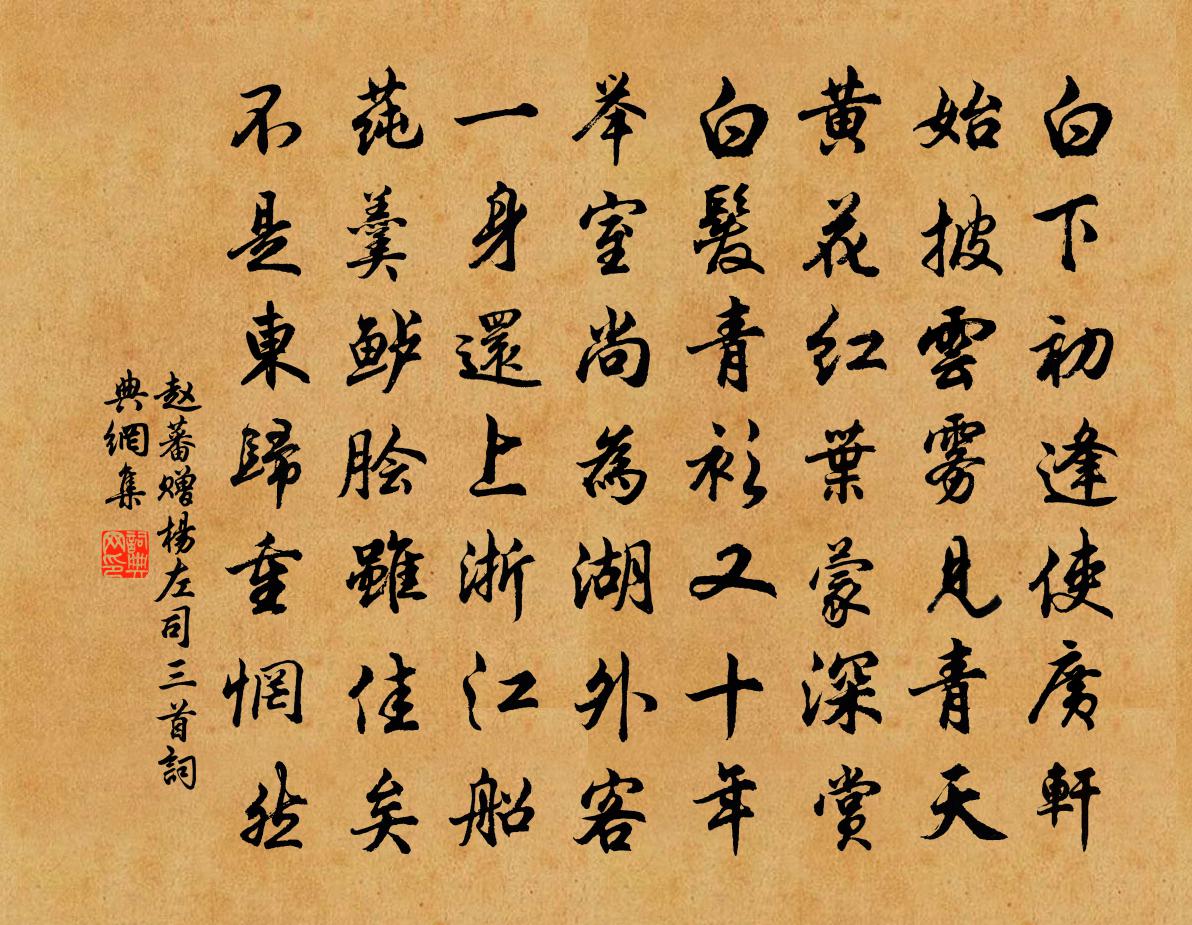 白下初逢使廣軒
始披雲雾見青天
黄花红葉蒙深赏
白髮青衫又十年
举室尚為湖外客
一身還上浙江船
莼羹鲈脍雖佳矣
不是東歸重惘然
赵蕃赠楊左司三首詞
典網集
詞典网印